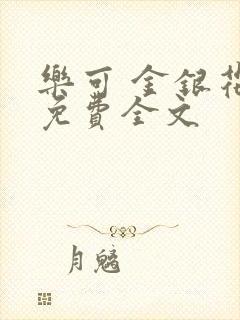 樂可 金銀花
免費全文
月魑